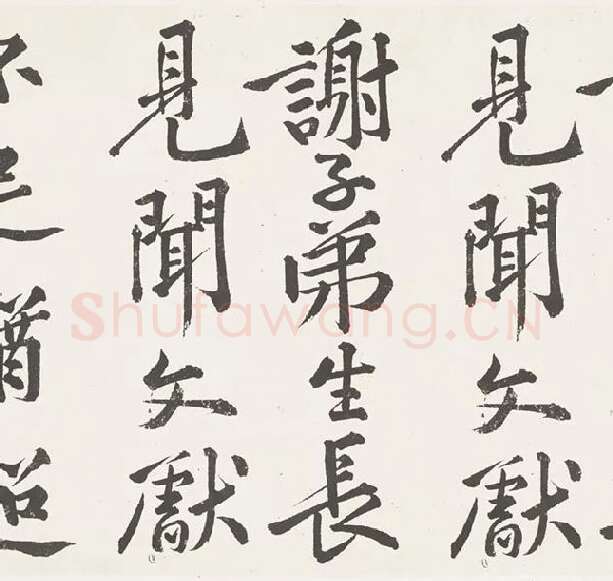 見聞文獻
謝子弟生長
見聞文獻
不足猶
Shufawang.CN